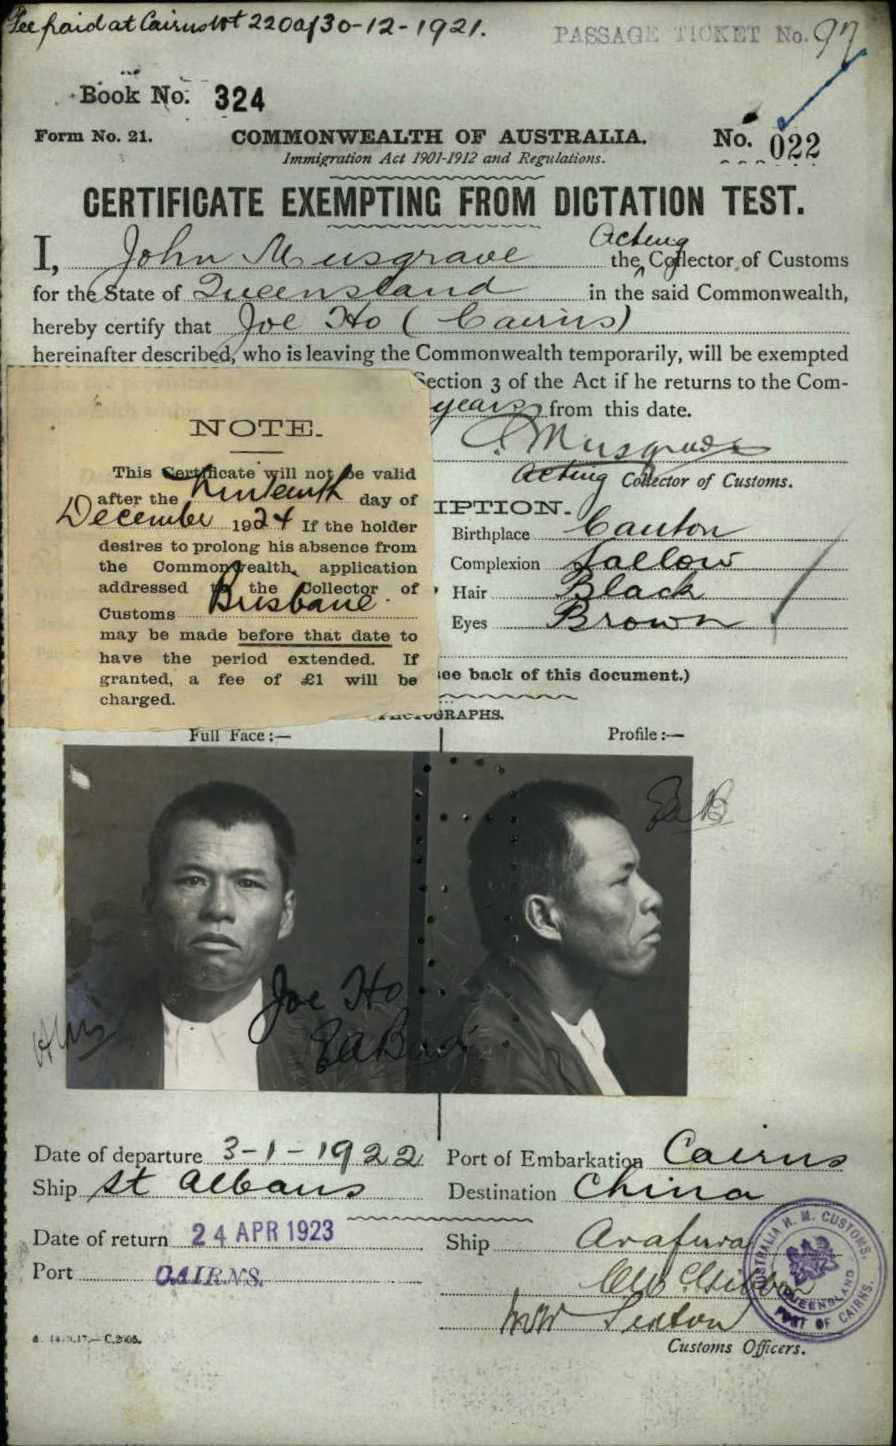 Fee paid at Cairns 220 of 30-12-1921.
PASSAGE TICKET No. 97
Book No. 324
Form No. 21.
COMMONWEALTH OF AUSTRALIA.
No. 022
Immigration Act 1901-1912 and Regulations.
CERTIFICATE EXEMPTING FROM DICTATION TEST.
Acting
I, John Musgrave the Collector of Customs
for the State of Queensland in the said Commonwealth,
hereby certify that Joe Ho (Cairns)
hereinafter described, who is leaving the Commonwealth temporarily, will be exempted
Section 3 of the Act if he returns to the Com-
years from this date.
J Musgrave
Acting Collector of Customs.
NOTE.
This Certificate will not be valid
after the Nineteenth day of
December 1924 If the holder
desires to prolong his absence from
the Commonwealth, application
addressed to the Collector of
Customs Brisbane
may be made before that date to
have the period extended. If
granted, a fee of £1 will be
charged.
IPTION.
Birthplace Canton
Complexion Sallow
Hair Black
Eyes Brown
see back of this document.)
OGRAPHS.
Full Face:—
Profile:—
Joe Ho
Date of departure 3-1-1922
Port of Embarkation Cairns
Ship St Albans
Destination China
Date of return 24 APR 1923
Ship Arafura
Port CAIRNS.
Customs Officers.
AUSTRALIA H. M. CUSTOMS.
QUEENSLAND
PORT OF CAIRNS.